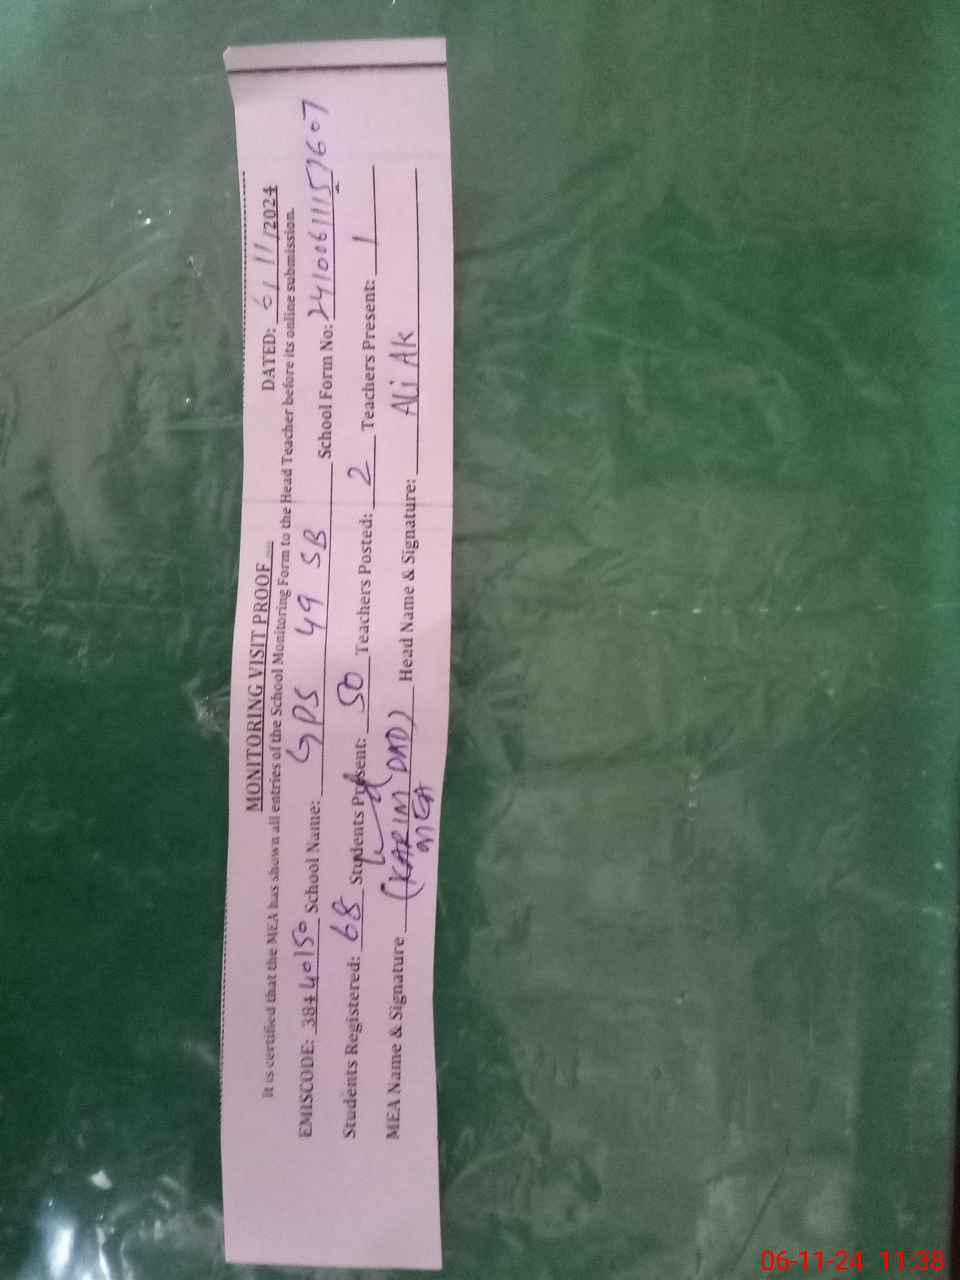 MONITORING VISIT PROOF
DATED: 6/11/2024
It is certified that the MEA has shown all entries of the School Monitoring Form to the Head Teacher before its online submission.
EMISCODE: 38440150 School Name: GPS 49 SB School Form No: 24100611157607
Students Registered: 68 Students Present: 50 Teachers Posted: 2 Teachers Present: 1
MEA Name & Signature (KARIM DAD) Head Name & Signature: Ali Ak
MEA
06-11-24 11:38